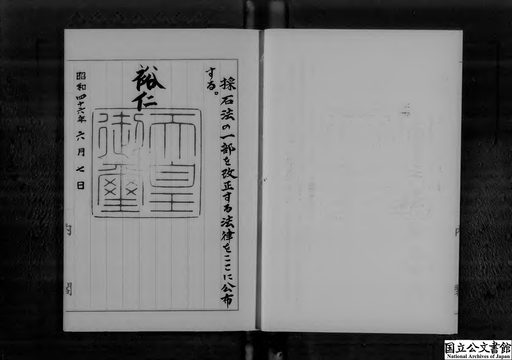 採石法の一部を改正する法律をここに公布
する。
裕仁
天皇
御璽
昭和四十六年六月七日
内閣
国立公文書館
National Archives of Japan